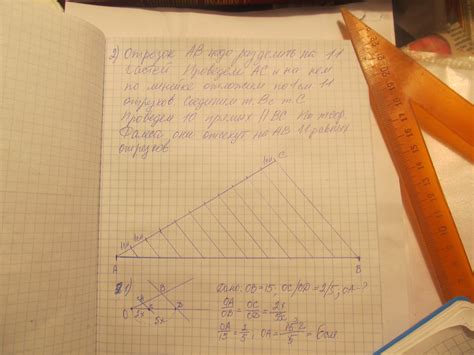 2) Отрезок АВ надо разделить на 11
частей. Проведем АС и на нем
по линейке отложим по 1 см 11
отрезков. Соединим т. В с т. С
Проведем 10 прямых || ВС. По теор.
Фалеса они отсекут на АВ 11 равных
отрезков.
С
А
В
1)
Дано: OB=15, OC/OD=2/5, OA-?
OA/OB = OC/OD = 2x/5x
OA/15 = 2/5; OA = 15·2/5 = 6 см
О
2x
5x
14 15 16 17 18 19 20